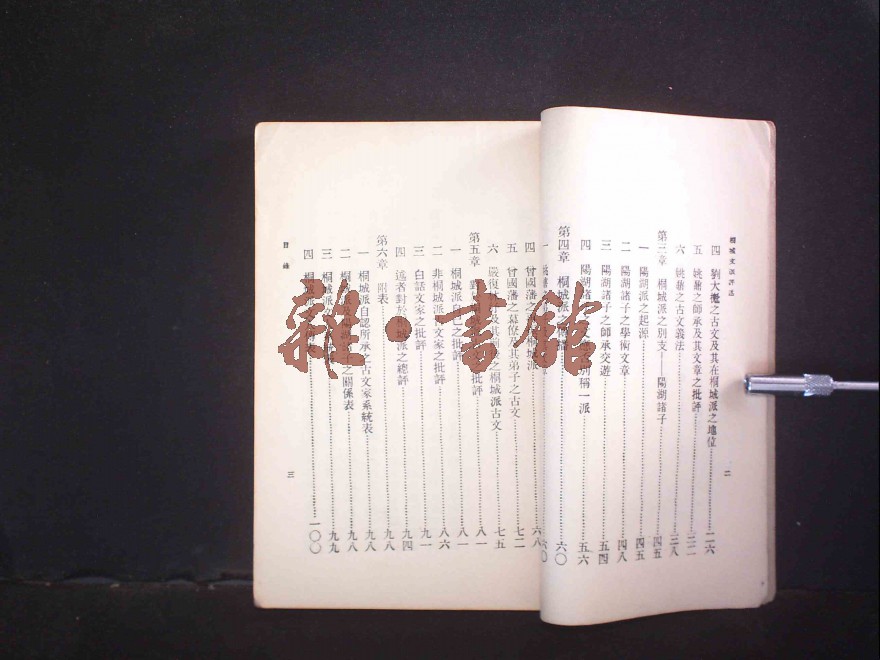 桐城文派評述
四 劉大櫆之古文及其在桐城派之地位……二六
五 姚鼐之師承及其文章之批評……三二
六 姚鼐之古文義法……三八
第三章 桐城派之別支——陽湖諸子……四五
一 陽湖派之起源……四五
二 陽湖諸子之學術文章……四八
三 陽湖諸子之師承交遊……五四
四 陽湖諸 別稱一派……五六
第四章 桐城派……六〇
一……六〇
二
目錄
四 曾國藩之 桐城派……六八
五 曾國藩之幕僚及其弟子之古文……七二
六 嚴復 及其 之桐城派古文……七五
第五章 對 批評……八一
一 桐城派自己之批評……八一
二 非桐城派 文家之批評……八六
三 白話文家之批評……九一
四 述者對於桐城派之總評……九四
第六章 附表……九八
一 桐城派自認所承之古文家系統表……九八
二 桐城 及 之關係表……九八
三 桐城派……九九
四 桐城……一〇〇
三
雜·書館